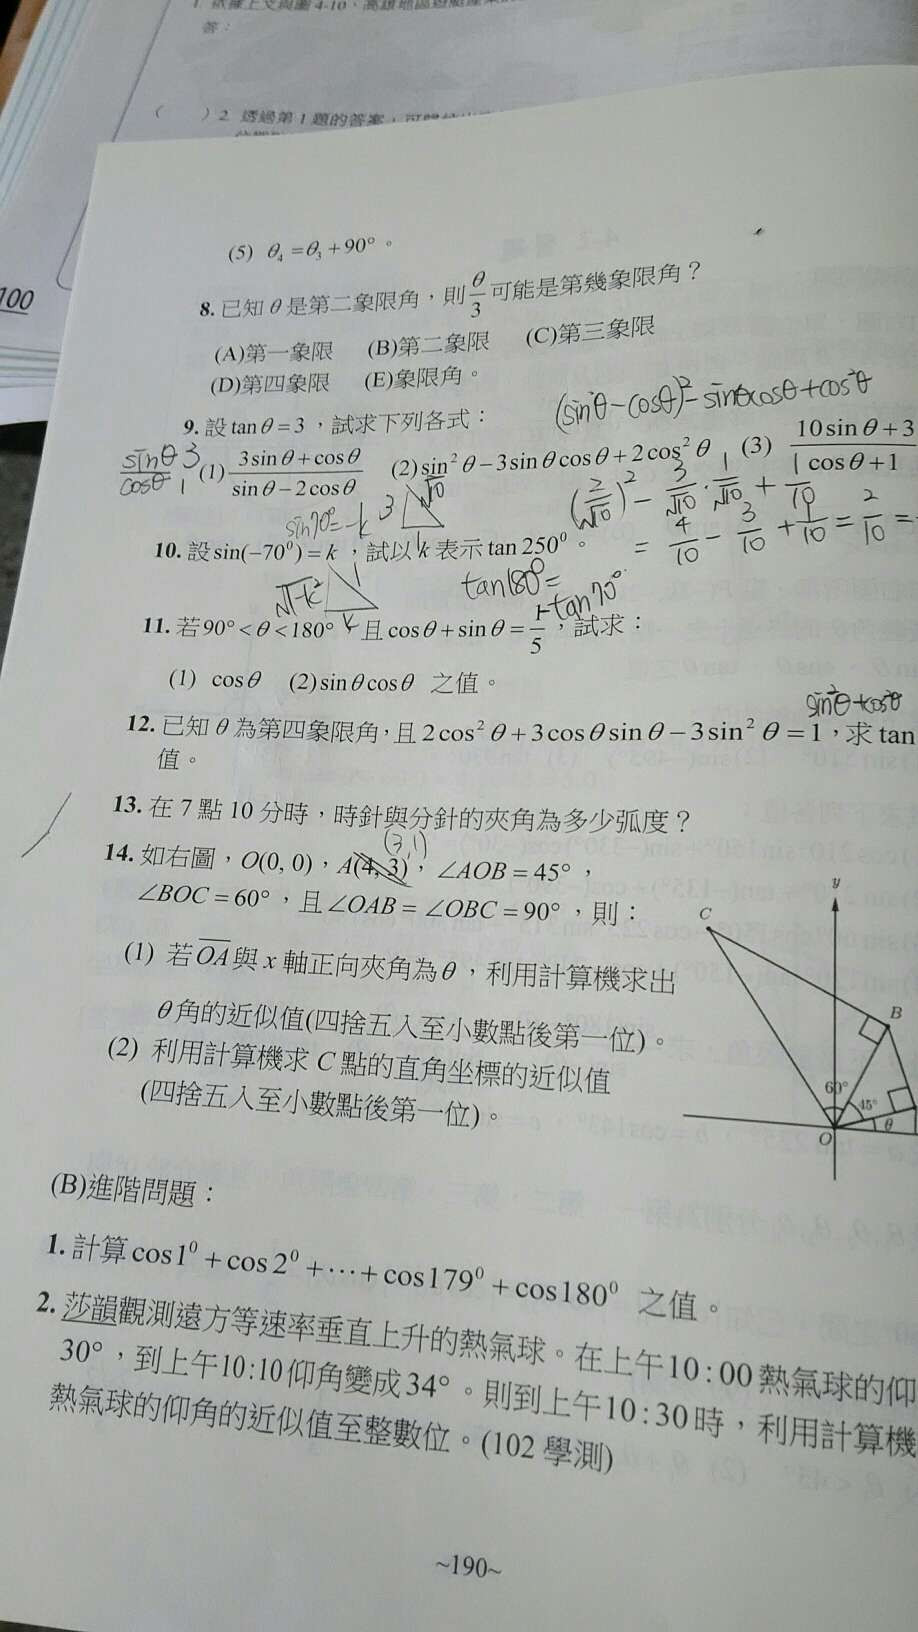 1. 依據上文與圖 4-10，高雄地區
答：
（　）2. 透過第 1 題的答案，可
100
(5) θ₄ = θ₃ + 90°。
8. 已知 θ 是第二象限角，則 θ/3 可能是第幾象限角？
(A)第一象限 (B)第二象限 (C)第三象限
(D)第四象限 (E)象限角。
(sinθ−cosθ)²− sinθcosθ + cos²θ
9. 設 tanθ = 3，試求下列各式：
sinθ/cosθ 3/1 (1) (3sinθ + cosθ)/(sinθ − 2cosθ) (2) sin²θ − 3sinθcosθ + 2cos²θ (3) (10sinθ + 3)/(cosθ + 1)
sin70°= −k 3 √10 1 (2/√10)² − 3/√10 · 1/√10 + 1/10
= 4/10 − 3/10 + 1/10 = 2/10 =
10. 設 sin(−70⁰) = k，試以 k 表示 tan 250⁰。
√1−k² 1 k tan180°= +tan70°
11. 若 90° < θ < 180°，且 cosθ + sinθ = 1/5，試求：
(1) cosθ (2) sinθcosθ 之值。
sin²θ + cos²θ
12. 已知 θ 為第四象限角，且 2cos²θ + 3cosθsinθ − 3sin²θ = 1，求 tan
值。
13. 在 7 點 10 分時，時針與分針的夾角為多少弧度？
(3,1)
14. 如右圖，O(0, 0)，A(4, 3)，∠AOB = 45°，
∠BOC = 60°，且 ∠OAB = ∠OBC = 90°，則：
(1) 若 OA 與 x 軸正向夾角為 θ，利用計算機求出
θ 角的近似值(四捨五入至小數點後第一位)。
(2) 利用計算機求 C 點的直角坐標的近似值
(四捨五入至小數點後第一位)。
y
C
B
60°
45°
θ
O
(B)進階問題：
1. 計算 cos1⁰ + cos2⁰ + ⋯ + cos179⁰ + cos180⁰ 之值。
2. 莎韻觀測遠方等速率垂直上升的熱氣球。在上午10:00 熱氣球的仰
30°，到上午10:10 仰角變成 34°。則到上午10:30 時，利用計算機
熱氣球的仰角的近似值至整數位。(102 學測)
~190~